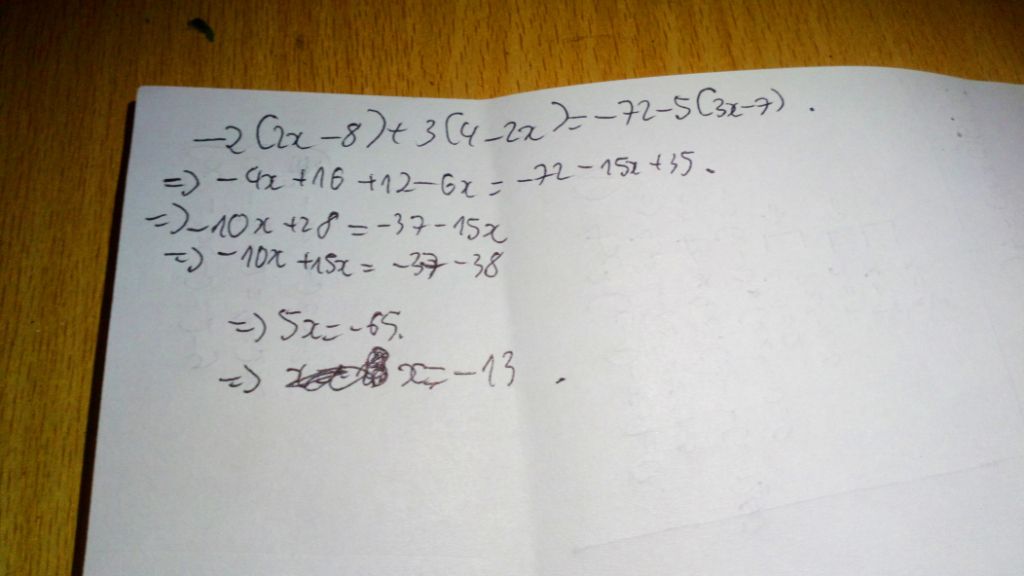 -2(2x-8)+3(4-2x)=-72-5(3x-7).
=> -4x+16+12-6x=-72-15x+35.
=> -10x+28=-37-15x
=> -10x+15x=-37-38
=> 5x=-65.
=> x=-13.